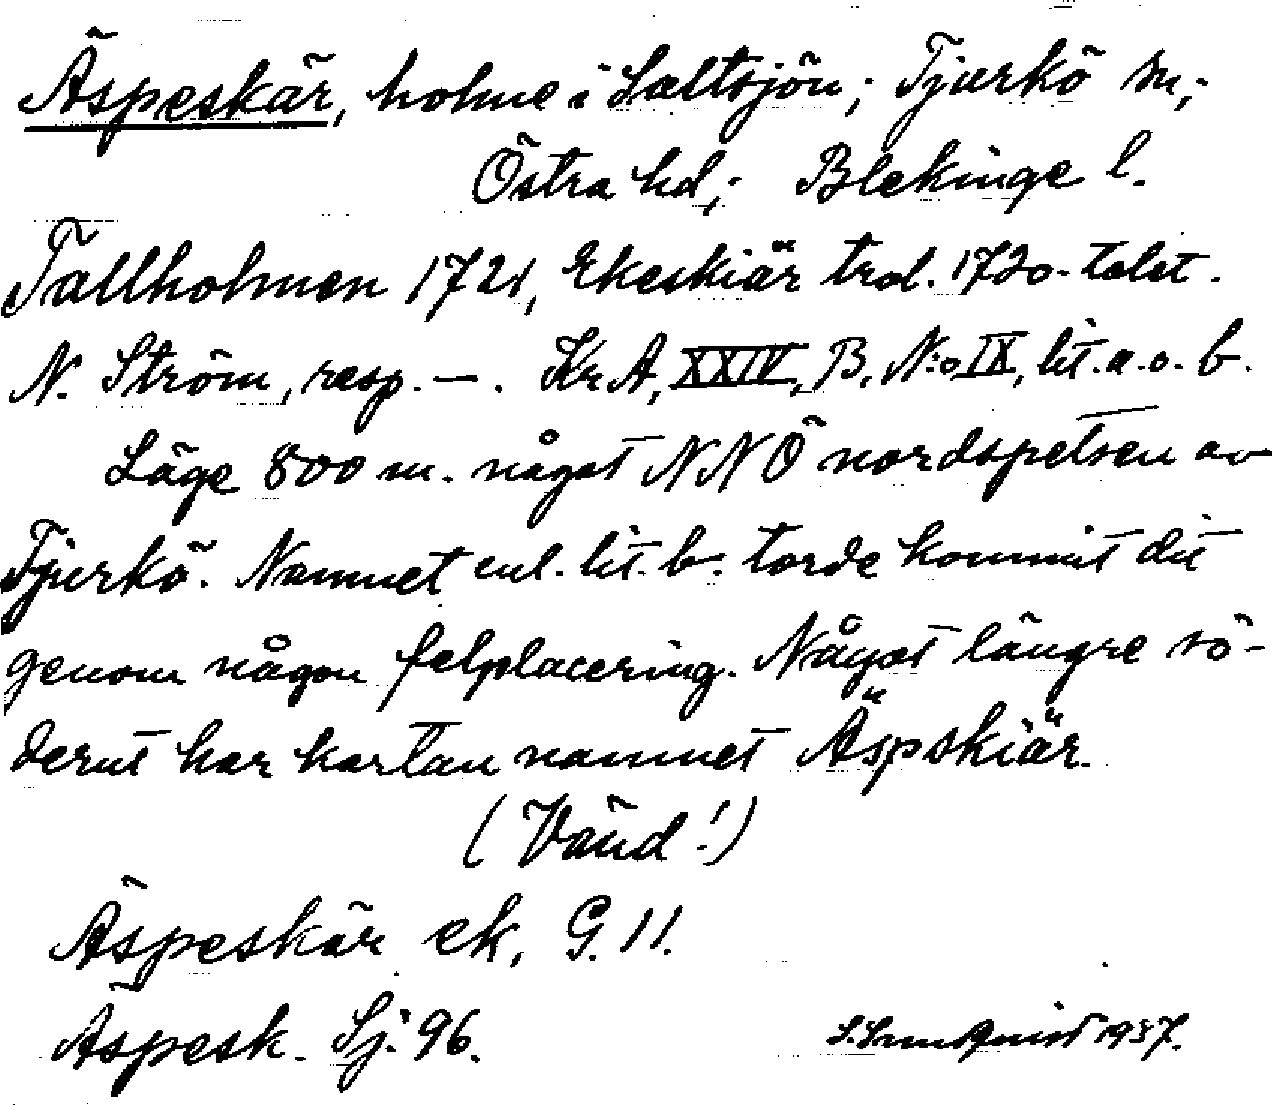 Äspeskär, holme i Saltsjön; Tjurkö sn,;
Östra hd,; Blekinge l.
Tallholmen 1721, Ekeskiär trol. 1720-talet.
N. Ström, resp. —. Kr A, XXIV, B, N:o IX, lit. a. o. b.
Läge 800 m. något NNÖ nordspetsen av
Tjurkö. Namnet enl. lit. b. torde kommit dit
genom någon felplacering. Något längre sö-
derut har kartan namnet Äspskiär.
(Vänd!)
Äspeskär ek, G. 11.
Äspesk. Sj. 96.
S. Sundquist 1937.